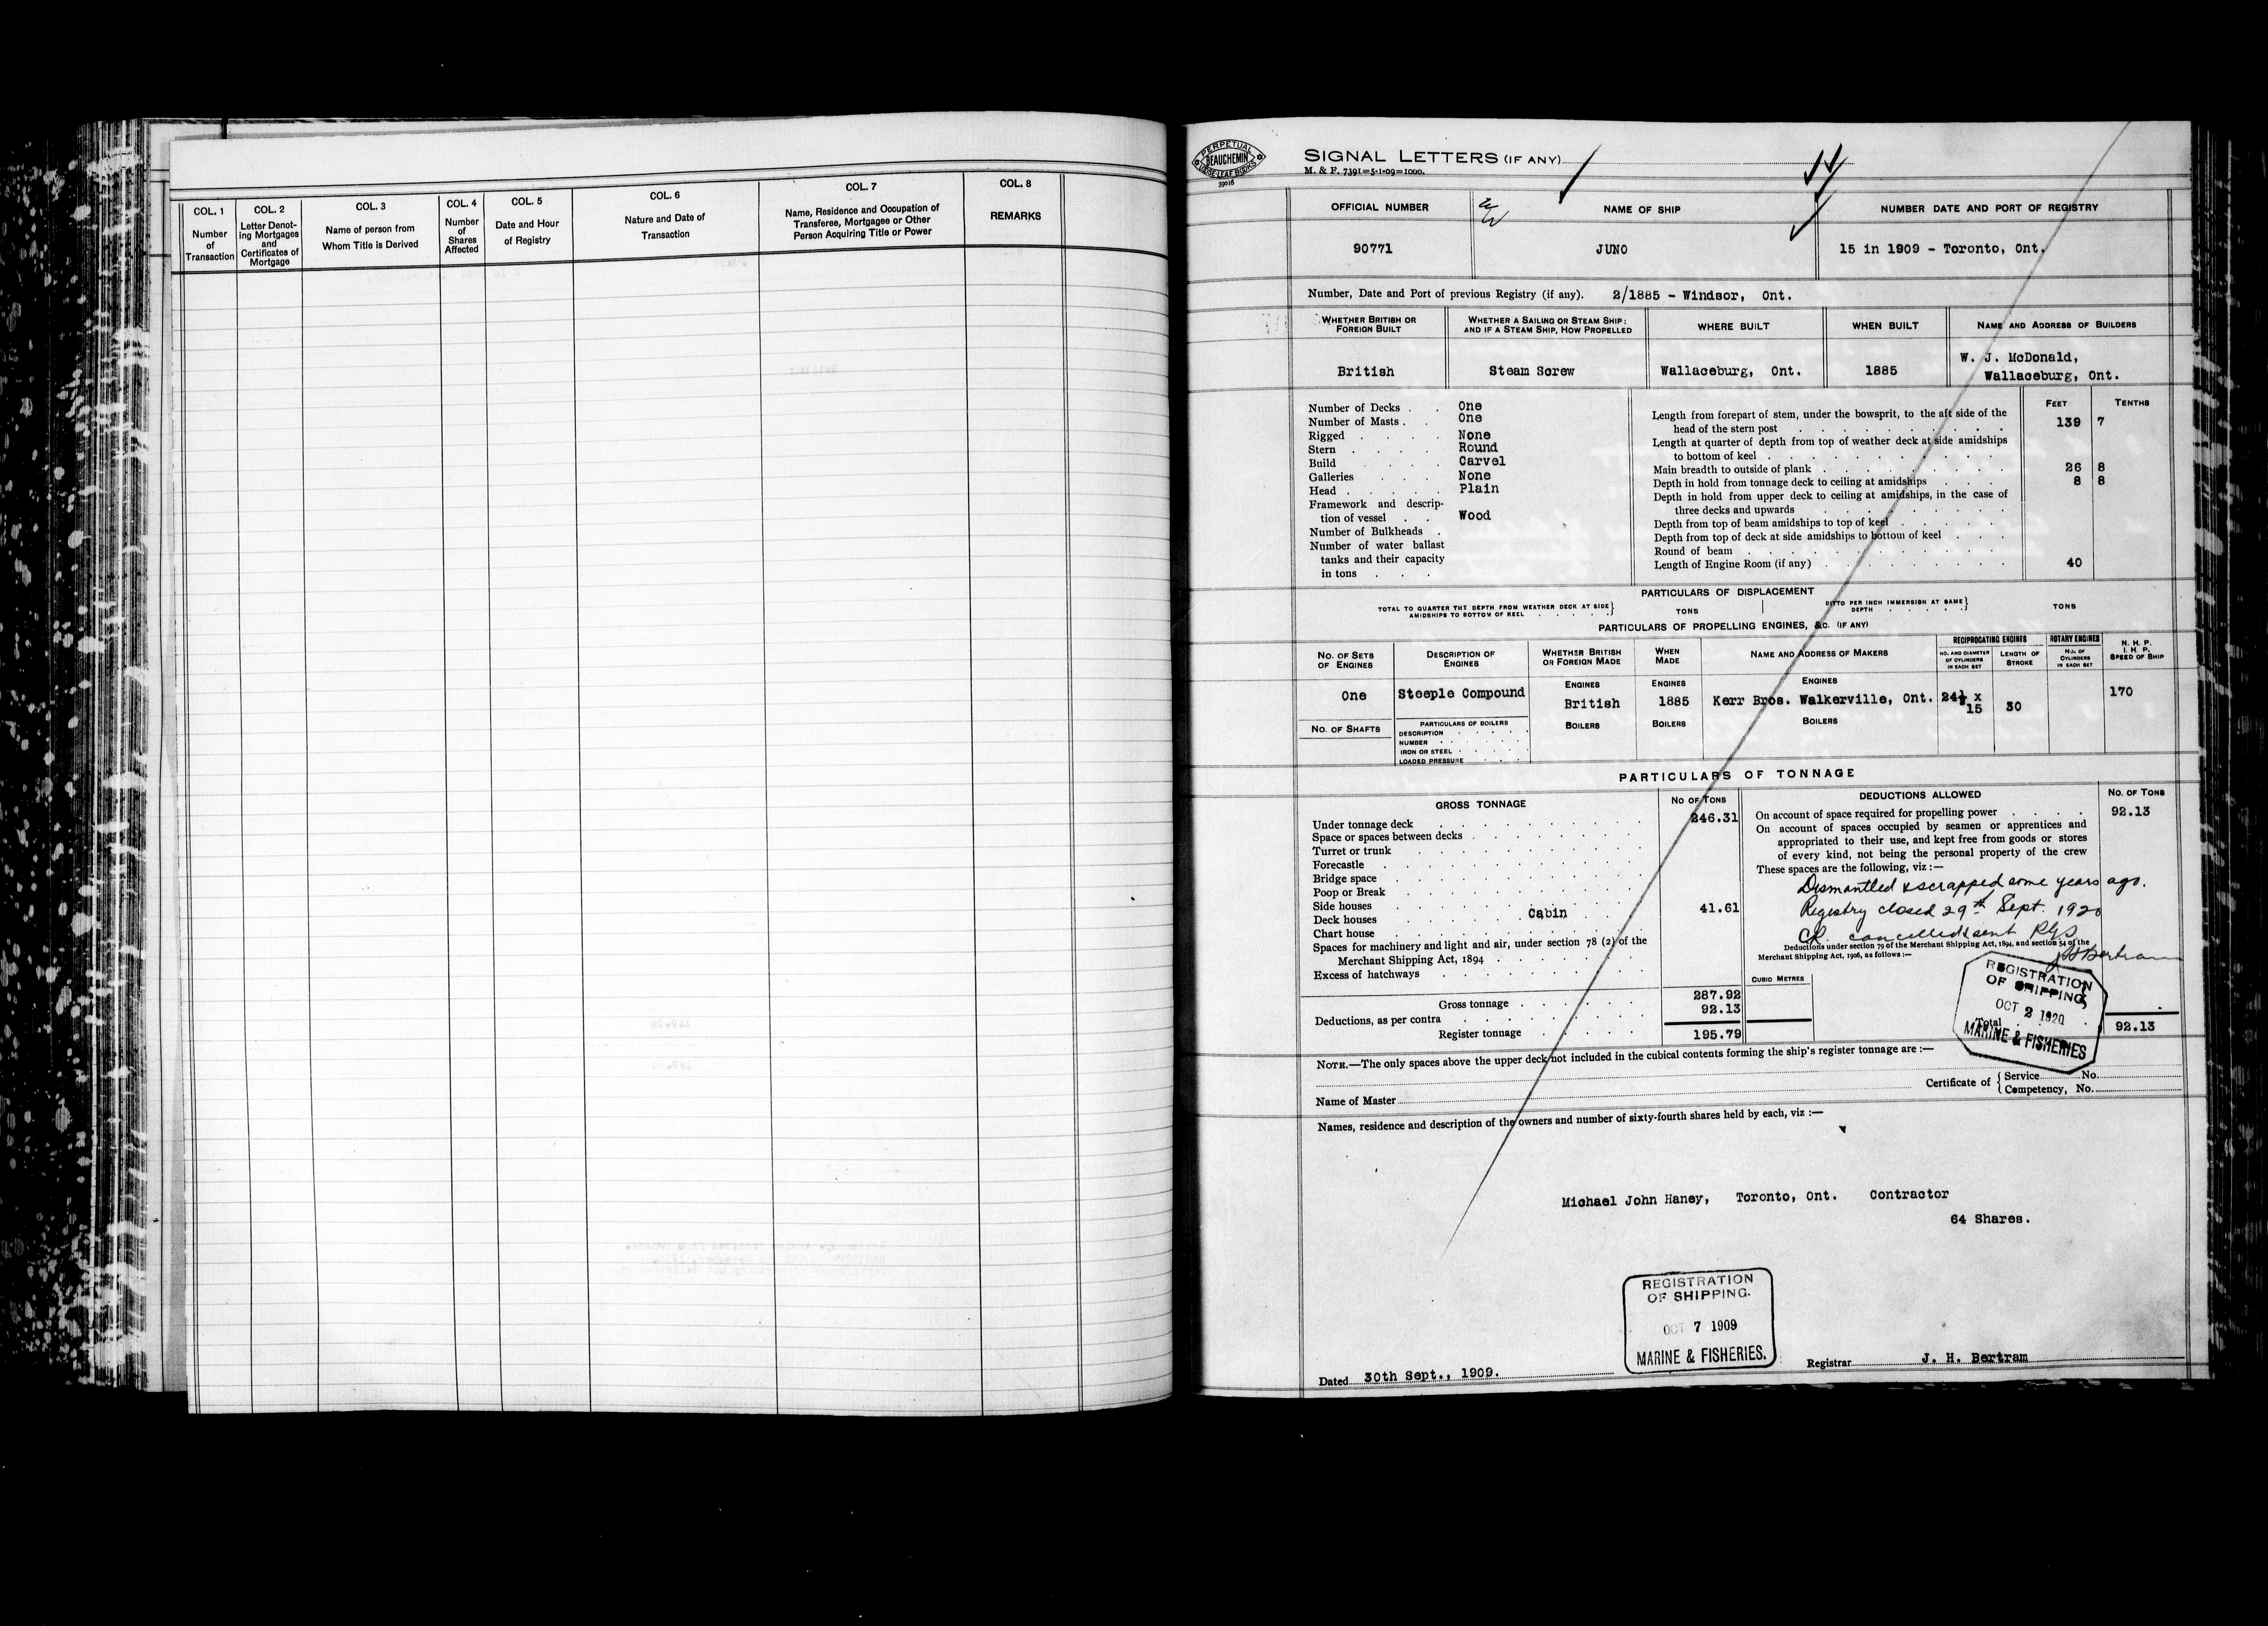 COL. 1
Number
of
Transaction
COL. 2
Letter Denot-
ing Mortgages
and
Certificates of
Mortgage
COL. 3
Name of person from
Whom Title is Derived
COL. 4
Number
of
Shares
Affected
COL. 5
Date and Hour
of Registry
COL. 6
Nature and Date of
Transaction
COL. 7
Name, Residence and Occupation of
Transferee, Mortgagee or Other
Person Acquiring Title or Power
COL. 8
REMARKS
PERPETUAL
BEAUCHEMIN
LOOSE-LEAF BOOKS
39016
SIGNAL LETTERS (IF ANY)
M. & F. 7391=5-1-09=1000.
OFFICIAL NUMBER
NAME OF SHIP
NUMBER DATE AND PORT OF REGISTRY
90771
JUNO
15 in 1909 - Toronto, Ont.
Number, Date and Port of previous Registry (if any). 2/1885 - Windsor, Ont.
WHETHER BRITISH OR
FOREIGN BUILT
WHETHER A SAILING OR STEAM SHIP;
AND IF A STEAM SHIP, HOW PROPELLED
WHERE BUILT
WHEN BUILT
NAME AND ADDRESS OF BUILDERS
British
Steam Screw
Wallaceburg, Ont.
1885
W. J. McDonald,
Wallaceburg, Ont.
Number of Decks . . One
Number of Masts . . One
Rigged . . . . None
Stern . . . . Round
Build . . . . Carvel
Galleries . . . None
Head . . . . . Plain
Framework and descrip-
tion of vessel . . Wood
Number of Bulkheads .
Number of water ballast
tanks and their capacity
in tons . . .
FEET TENTHS
Length from forepart of stem, under the bowsprit, to the aft side of the
head of the stern post 139 7
Length at quarter of depth from top of weather deck at side amidships
to bottom of keel
Main breadth to outside of plank 26 8
Depth in hold from tonnage deck to ceiling at amidships 8 8
Depth in hold from upper deck to ceiling at amidships, in the case of
three decks and upwards
Depth from top of beam amidships to top of keel
Depth from top of deck at side amidships to bottom of keel
Round of beam
Length of Engine Room (if any) 40
PARTICULARS OF DISPLACEMENT
TOTAL TO QUARTER THE DEPTH FROM WEATHER DECK AT SIDE
AMIDSHIPS TO BOTTOM OF KEEL
TONS
DITTO PER INCH IMMERSION AT SAME
DEPTH
TONS
PARTICULARS OF PROPELLING ENGINES, &C. (IF ANY)
NO. OF SETS
OF ENGINES
DESCRIPTION OF
ENGINES
WHETHER BRITISH
OR FOREIGN MADE
WHEN
MADE
NAME AND ADDRESS OF MAKERS
RECIPROCATING ENGINES
NO. AND DIAMETER
OF CYLINDERS
IN EACH SET
LENGTH OF
STROKE
ROTARY ENGINES
NO. OF
CYLINDERS
IN EACH SET
N. H. P.
I. H. P.
SPEED OF SHIP
ENGINES
ENGINES
ENGINES
One
Steeple Compound
British
1885
Kerr Bros. Walkerville, Ont.
x
15
30
170
NO. OF SHAFTS
PARTICULARS OF BOILERS
DESCRIPTION
NUMBER
IRON OR STEEL
LOADED PRESSURE
BOILERS
BOILERS
BOILERS
PARTICULARS OF TONNAGE
GROSS TONNAGE
NO OF TONS
Under tonnage deck 246.31
Space or spaces between decks
Turret or trunk
Forecastle
Bridge space
Poop or Break
Side houses
Deck houses Cabin 41.61
Chart house
Spaces for machinery and light and air, under section 78 (2) of the
Merchant Shipping Act, 1894
Excess of hatchways
Gross tonnage 287.92
Deductions, as per contra 92.13
Register tonnage 195.79
DEDUCTIONS ALLOWED
NO. OF TONS
On account of space required for propelling power 92.13
On account of spaces occupied by seamen or apprentices and
appropriated to their use, and kept free from goods or stores
of every kind, not being the personal property of the crew
These spaces are the following, viz :—
Dismantled & scrapped some years ago.
Registry closed 29th Sept. 1920
CR. cancelled & sent RGS
JHBertram
Deductions under section 79 of the Merchant Shipping Act, 1894, and section 54 of the
Merchant Shipping Act, 1906, as follows :—
CUBIC METRES
REGISTRATION
OF SHIPPING
OCT 2 1920
MARINE & FISHERIES
Total 92.13
NOTE.—The only spaces above the upper deck not included in the cubical contents forming the ship's register tonnage are :—
Name of Master
Certificate of
Service No.
Competency, No.
Names, residence and description of the owners and number of sixty-fourth shares held by each, viz :—
Michael John Haney, Toronto, Ont. Contractor
64 Shares.
REGISTRATION
OF SHIPPING.
OCT 7 1909
MARINE & FISHERIES.
Dated 30th Sept., 1909.
Registrar J. H. Bertram